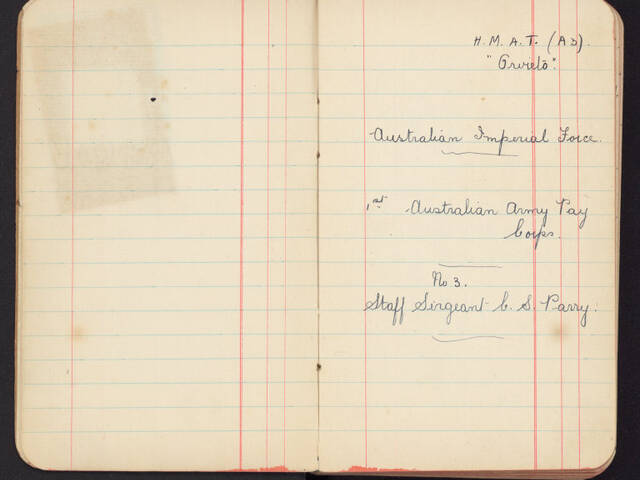 H. M. A. T. (A3).
"Orvieto".
Australian Imperial Force.
1st Australian Army Pay
Corps.
No 3.
Staff Sergeant C. S. Parry.